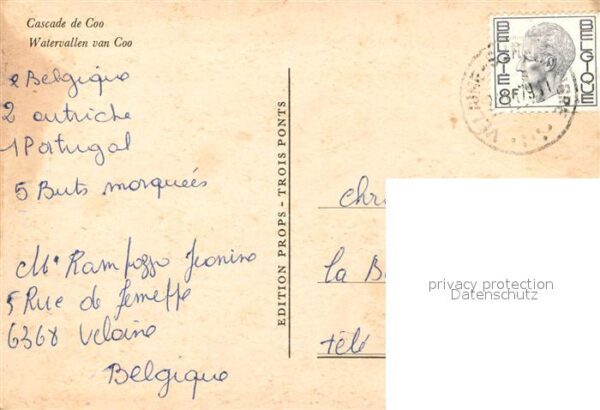 Cascade de Coo
Watervallen van Coo
2 Belgique
2 autriche
1 Portugal
5 Buts marqueés
Mr Rampozzo Jeonino
5 Rue de Jemeppe
6368 Velaine
Belgique
EDITION PROPS - TROIS PONTS
BELGIË 8
BELGIQUE
Chr
la B
télé
privacy protection
Datenschutz